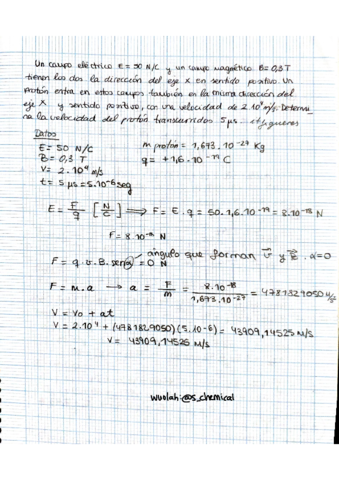 Un campo eléctrico E = 50 N/C y un campo magnético B = 0,3 T
tienen los dos la dirección del eje X en sentido positivo. Un
protón entra en estos campos también en la misma dirección del
eje X y sentido positivo, con una velocidad de 2·10⁴ m/s. Determi
na la velocidad del protón transcurridos 5 µs.
Datos
E = 50 N/C m protón = 1,673·10⁻²⁷ Kg
B = 0,3 T q = +1,6·10⁻¹⁹ C
V = 2·10⁴ m/s
t = 5 µs = 5·10⁻⁶ seg
E = F/q [N/C] ⟹ F = E·q = 50·1,6·10⁻¹⁹ = 8·10⁻¹⁸ N
F = 8·10⁻¹⁸ N
ángulo que forman v⃗ y
α = 0
F = q·v·B·sen α = 0 N
F = m·a → a = F/m = 8·10⁻¹⁸/1,673·10⁻²⁷ = 4781829050 m/s²
V = Vo + at
V = 2·10⁴ + (4781829050)(5·10-6) = 43909,14525 m/s
V = 43909,14525 m/s
wuolah:@s_chemical